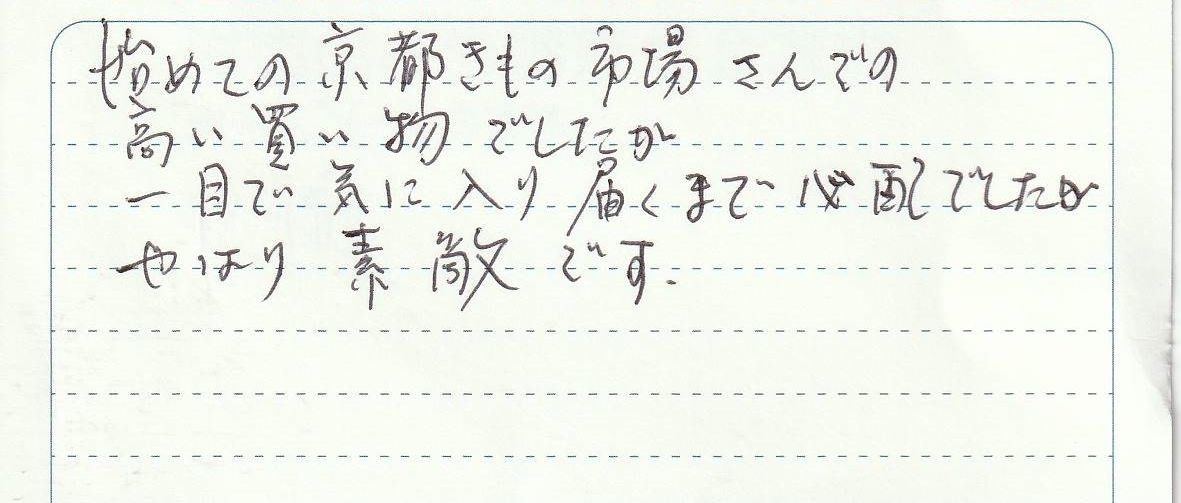 始めての京都きもの市場さんでの
高い買い物でしたが
一目で気に入り届くまで心配でしたが
やはり素敵です.